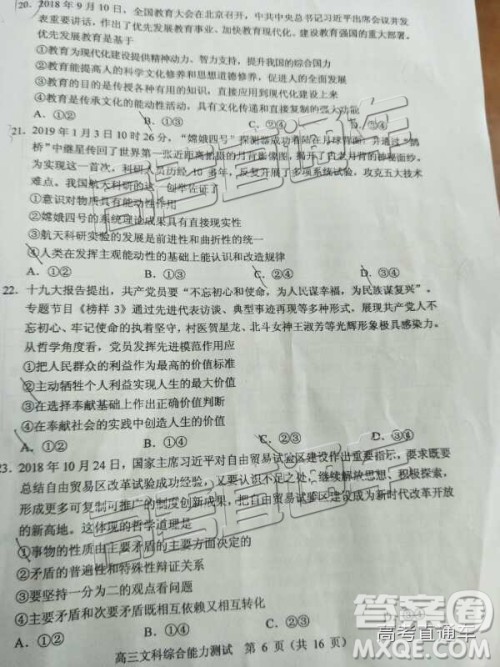 20. 2018 年 9 月 10 日，全国教育大会在北京召开，中共中央总书记习近平出席会议并发
表重要讲话，作出了优先发展教育事业、加快教育现代化、建设教育强国的重大部署。
优先发展教育是基于
①教育为现代化建设提供精神动力、智力支持，提升我国的综合国力
②教育能提高人的科学文化修养和思想道德修养，促进全面发展
③教育是传授各种有用的知识，直接应用到现代化建设上来
④教育是传承文化的能动性活动，具有文化传承的强大功能
A. ①② B. ①③ C. ②④ D. ③④
21. 2019 年 1 月 3 日 10 时 26 分，“嫦娥四号”探测器成功着陆在月球背面，并通过“鹊
桥”中继星传回了世界第一张近距离拍摄的月背影像图，揭开了古老月背的神秘面纱。
为实现这一首次，科研人员历经 10 多年，反复开展了多项系统试验，攻克五大技术
难点。我国航天科研的这一创举佐证了
①意识对物质具有能动性作用
②嫦娥四号的系统理论成果具有直接现实性
③航天科研实验的发展是前进性和曲折性的统一
④人类在发挥主观能动性的基础上能认识和改造规律
A. ①② B. ①③ C. ②④ D. ③④
22. 十九大报告提出，共产党员要“不忘初心和使命，为人民谋幸福，为民族谋复兴”。
专题节目《榜样 3》通过先进代表访谈、典型事迹再现等多种形式，展现了共产党人不
忘初心、牢记使命的执着坚守，村医贺星龙、北斗女神王淑芳等光辉形象极具感染力。
从哲学角度看，党员发挥先进模范作用应
①把人民群众的利益作为最高的价值标准
②主动牺牲个人利益实现人生的最大价值
③在选择奉献基础上作出正确价值
④在奉献社会的实践中创造人生的价值
A. ①② B. ①④ C. ②③ D. ③④
23. 2018 年 10 月 24 日，国家主席习近平对自由贸易试验区建设作出重要指示，要求既要
总结自由贸易区改革试验成功经验，又要认识不足之处，继续解放思想、积极探索，
形成更多可复制可推广的制度创新成果，把自由贸易试验区建设成为新时代改革开放
的新高地。这体现的哲学道理是
①事物的性质由主要矛盾的主要方面决定的
②矛盾的普遍性和特殊性辩证关系
③要坚持一分为二的观点看问题
④主次矛盾既相互依赖又相互转化
A. ①② B. ①④ C. ②③
高三文科综合能力测试 第 6 页（共 16 页）
答案圈
高考直通车